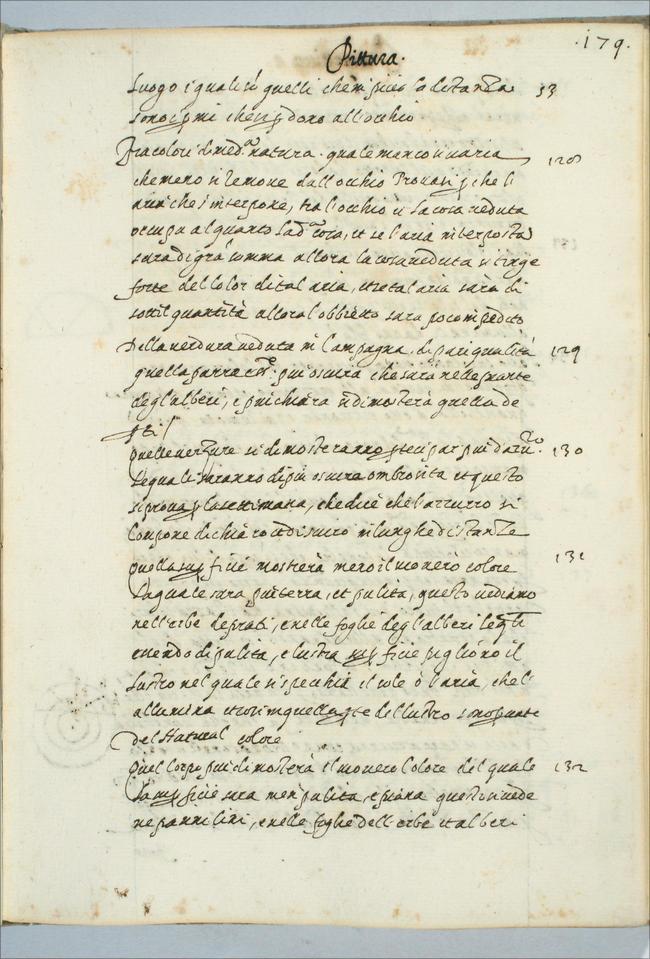 .179.
Pittura.
luogo i quali quelli che la distanza 53
sono che dono all'occhio
Fra colori di med.a natura. quale manco si varia 128
che meno si remove dall'occhio Provasi che l
aria che s interpone, tra l'occhio e la cosa veduta
occupa alquanto la d.a cosa, et se l'aria interposta
sara di grā somma allora la cosa veduta si tinge
forte del color di tal aria, et se tal aria sarà di
sottil quantità allora l obbietto sara poco impedito
Della verdura veduta in campagna, di pari qualità 129
quella parra più oscura che sarà nelle piante
degl'alberi, e più chiara si dimosterà quella de
pti /
Quelle verzure si dimosteranno partecipar più d'azu.ro 130
le quali saranno di più oscura ombrosita et questo
si prova settimana, che dice che l'azzurro si
compone di chiaro et d oscuro in lunghe distanze
Quella ficie mostrerà meno il suo vero colore 131
la quale sara più tersa, et pulita, questo vediamo
nell'erbe de prati, e nelle foglie degl'alberi le q̄li
essendo di pulita, e lustra ficie pigliono il
lustro nel quale si specchia il sole o l'aria, che l
allumina et cosi in quella parte del lustro sono private
del Natural colore
Quel corpo più dimosterà il suo vero colore del quale 132
la ficie sara men pulita, e piana questo si vede
ne panni lini, e nelle foglie dell'erbe et alberi